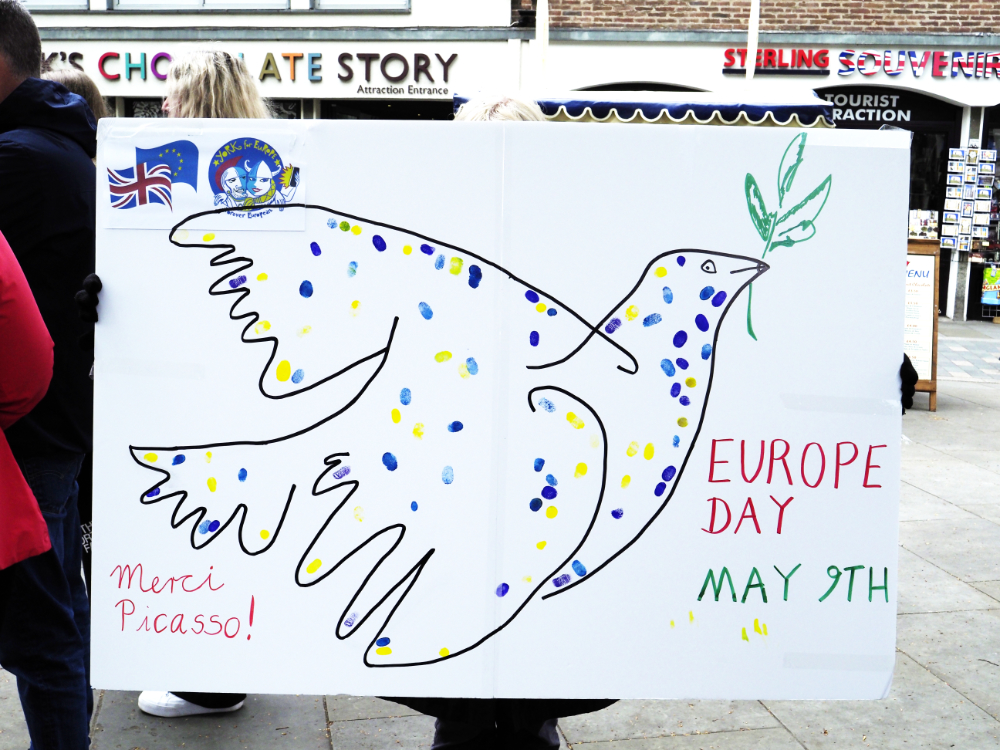 K'S CHOCOLATE STORY
Attraction Entrance
STERLING SOUVENIR
TOURIST
RACTION
YORK for EUROPE
Forever European
ENU
EUROPE
DAY
MAY 9TH
Merci
Picasso!